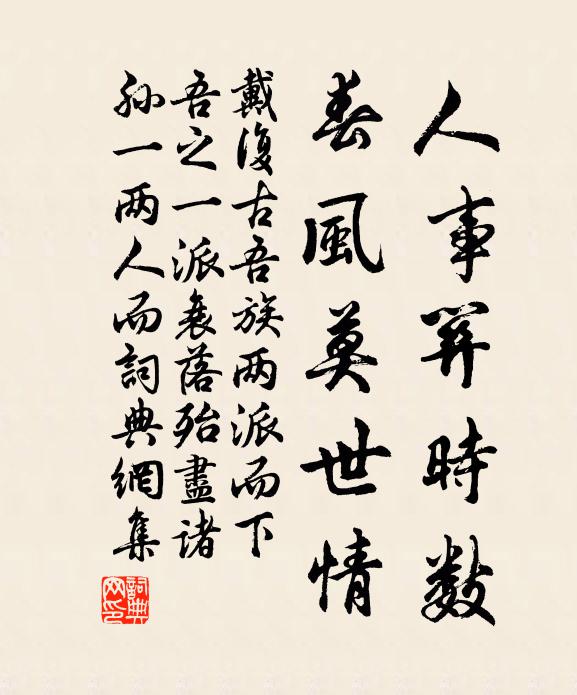 人事關時數
春風莫世情
戴復古吾族两派而下
吾之一派衰落殆盡諸
孫一两人而詞典網集
詞典網印